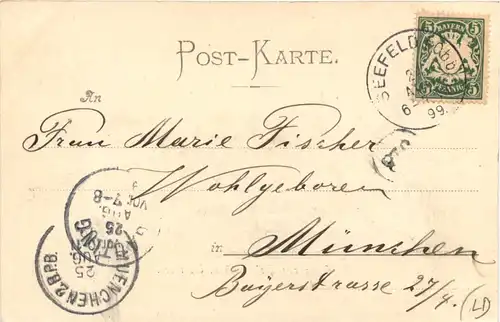 POST-KARTE.
BAYERN
5 5
PFENNIG
SEEFELD
99.
An
Frau Marie Fischer
Wohlgeboren
in München
Bayerstrasse 27/4.
MUENCHEN 2.B.P.B.
25
AUG.
VOR. 7-8
25
AUG.
LD